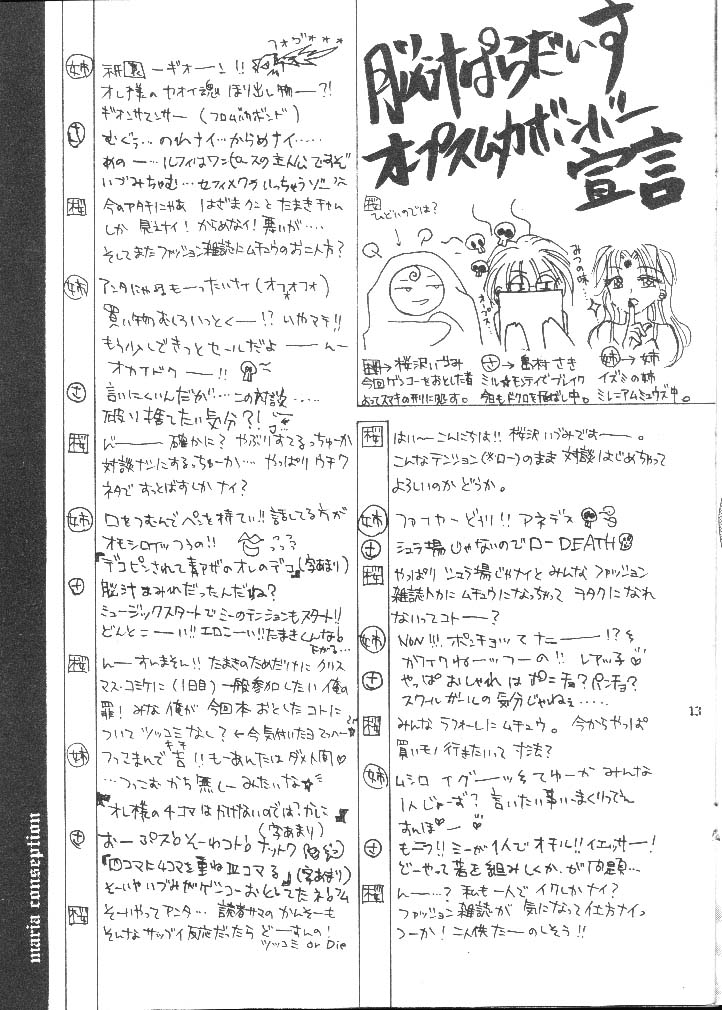 脳汁ぱらだいす
オプスムカボンバー
宣言
桜
ひどいのでは?
オプス…
みつの味…
桜→桜沢いづみ
今回ゲンコーをおとした者
よってスマキの刑に処す。
さ→島村さき
ミル☆モンティでブレイク
今日もドクロを飛ばし中。
姉→姉
イズミの姉
ミレニアムミュウズ中。
桜 はい〜こんにちは!! 桜沢いづみでーす。
こんなテンション(※ロー)のまま 対談はじめちゃって
よろしいのか どうか。
姉 ファイヤーどりり!! アネデス
さ シュラ場じゃないのでロー DEATH
桜 やっぱり シュラ場じゃナイと みんな ファッション
雑誌トカに ムチュウになっちゃって ヲタクに なれ
ないってコトー?
姉 NON!!! ポンチョッて ナニーー!?
がイクねーッつーの!! レアッ子♡
さ やっぱ おしゃれは ポンチョ? パンチョ?
スクールガールの気分じゃねぇ……
桜 みんな ラフォーレに ムチュウ。 今からやっぱ
買いモノ行きたいって寸法?
姉 ムシロ イグーーッ そてゆーか みんな
1人じゃーず? 言いたい事いいまくりってん
すんぽーー♡
さ もニフ!! ミーが1人でオチル!! イエッサー!
どーやって 著を組みしくか、が問題…
桜 んー…? 私も一人で イクしかナイ?
ファッション雑誌が 気になって仕方ナイっ
つーか! 二人供たーのしそう!!
姉 祇園ーギオーン!!
フォヴォ***
オレ様のヤオイ魂 ほり出し物ー?!
ギオンサマンサー (フロムバカボンド)
さ むぐぅ… のれナイ…からめナイ……
あのー…ルフィはワンピースの主人公ですぞ
いづみちゃむ…セフィメクラいっちゃうゾー
桜 今のアタチにゃあ はざまクンと たまきチャム
しか 見えナイ! からめないナ! 悪いが…
そしてまたファッション雑誌にムチュウのお二人方?
姉 アンタにゃぬもーったいナイ(オフォオフォ)
買い物むしろいっとくー!? いやマテ!!
もう少しできっとセールだよーんー
オカイドクー!!
さ 言いにくいんだが… この対談……
破り捨てたい気分?!
桜 んーー 確かに? やぶりすてるっちゅーか
対談ナシにするっちゅーか… やっぱり ウチワ
ネタで すっとばすしか ナイ?
姉 口をつむんで ペンを持てい!! 話してる方が
オモシロイッつうの!!
『デコピンされて青アザのオレのデコ』(字あまり)
さ 脳汁まみれだったんだね?
ミュージックスタートで ミーのテンションもスタート!!
どんとこーい!! エロこーい!! たまきくんなら
桜 んーすんません!! たまきのためだけに クリス
マス・コミケに(1日目)一般参加したい 俺の
罪! みな 俺が 今回本 おとしたコトに
ついて ツッコミなし? ←今気付いたヨ
姉 つってまんで吉!! もーあんたはダメ人間♡
…つっこむ から 無しーみたいな☆
『オレ様の4コマはかけないのでは?かしこ』
(字あまり)
さ おーぷす! そーゆコト! ナットク
『四コマに4コマを重ねⅢコマる』(字あまり)
そーいやいづみがゲンコーおとしてたネ!
桜 そーいやってアンタ… 読者サマの かんそーも
そんなサップイ反応だったら どーすんの!
ツッコミ or Die
13
maria conseption